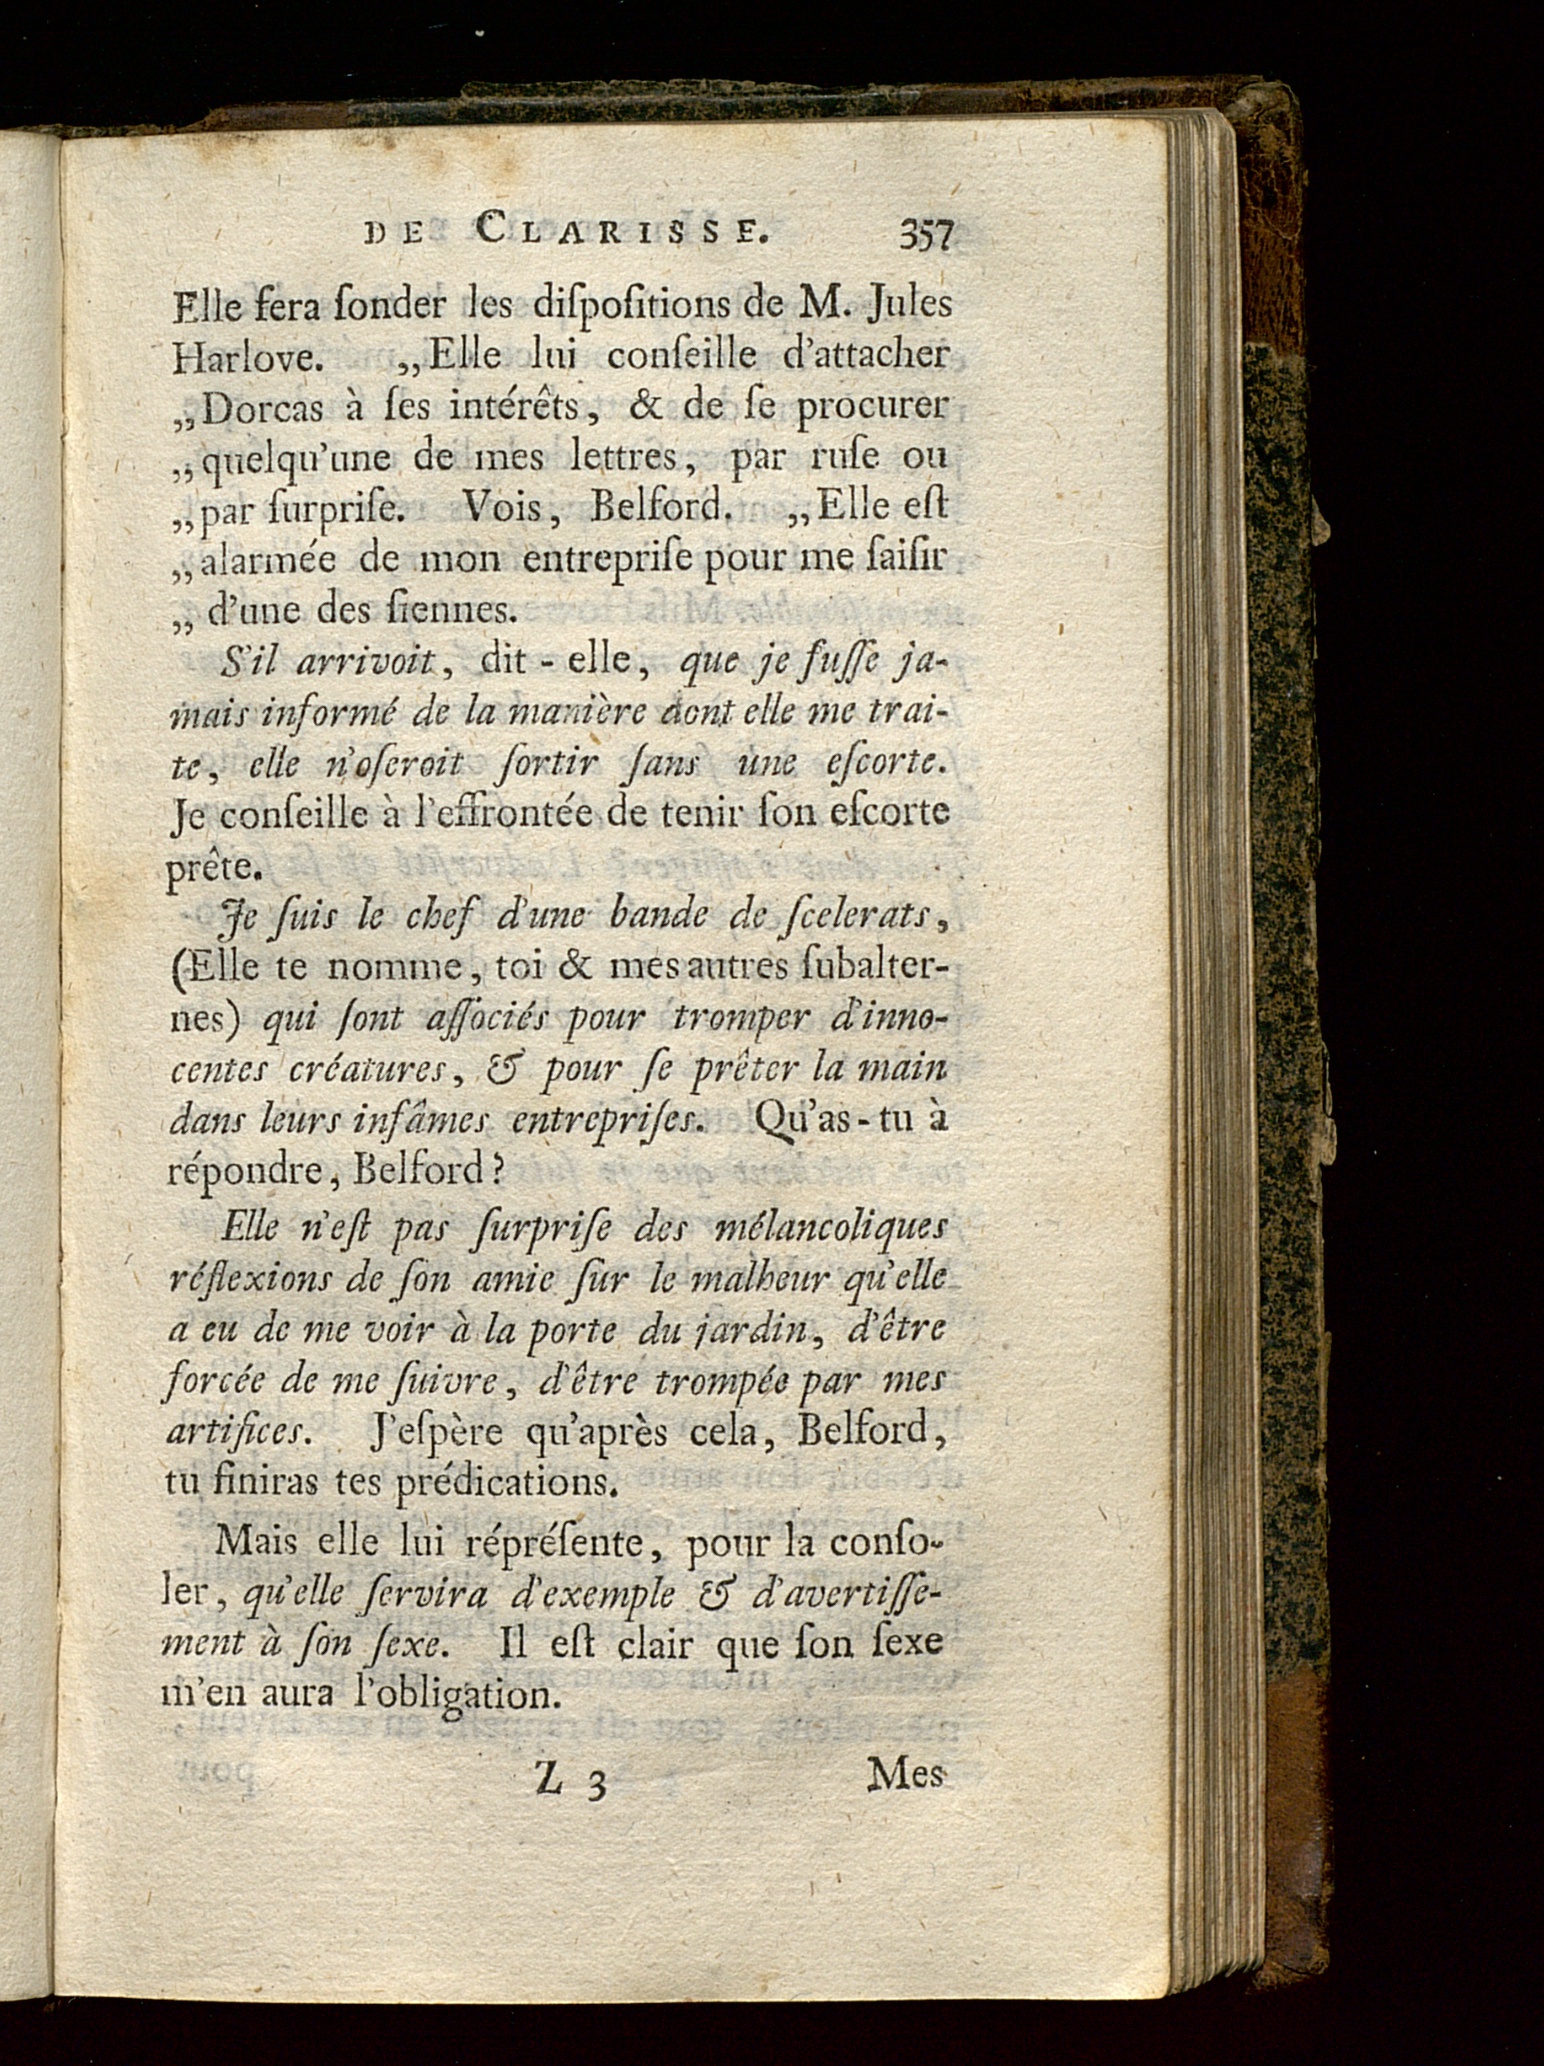 DE CLARISSE. 357
Elle fera ſonder les diſpoſitions de M. Jules
Harlove. „Elle lui conſeille d'attacher
„Dorcas à ſes intérêts, & de ſe procurer
„quelqu'une de mes lettres, par ruſe ou
„par ſurpriſe. Vois, Belford. „Elle eſt
„alarmée de mon entrepriſe pour me ſaiſir
„d'une des ſiennes.
S'il arrivoit, dit-elle, que je fuſſe ja-
mais informé de la manière dont elle me trai-
te, elle n'oſeroit ſortir ſans une eſcorte.
Je conſeille à l'effrontée de tenir ſon eſcorte
prête.
Je ſuis le chef d'une bande de ſcelerats,
(Elle te nomme, toi & mes autres ſubalter-
nes) qui ſont aſſociés pour tromper d'inno-
centes créatures, & pour ſe prêter la main
dans leurs infâmes entrepriſes. Qu'as-tu à
répondre, Belford?
Elle n'eſt pas ſurpriſe des mélancoliques
réflexions de ſon amie ſur le malheur qu'elle
a eu de me voir à la porte du jardin, d'être
forcée de me ſuivre, d'être trompée par mes
artifices. J'eſpère qu'après cela, Belford,
tu finiras tes prédications.
Mais elle lui répréſente, pour la conſo-
ler, qu'elle ſervira d'exemple & d'avertiſſe-
ment à ſon ſexe. Il eſt clair que ſon ſexe
m'en aura l'obligation.
Z 3 Mes